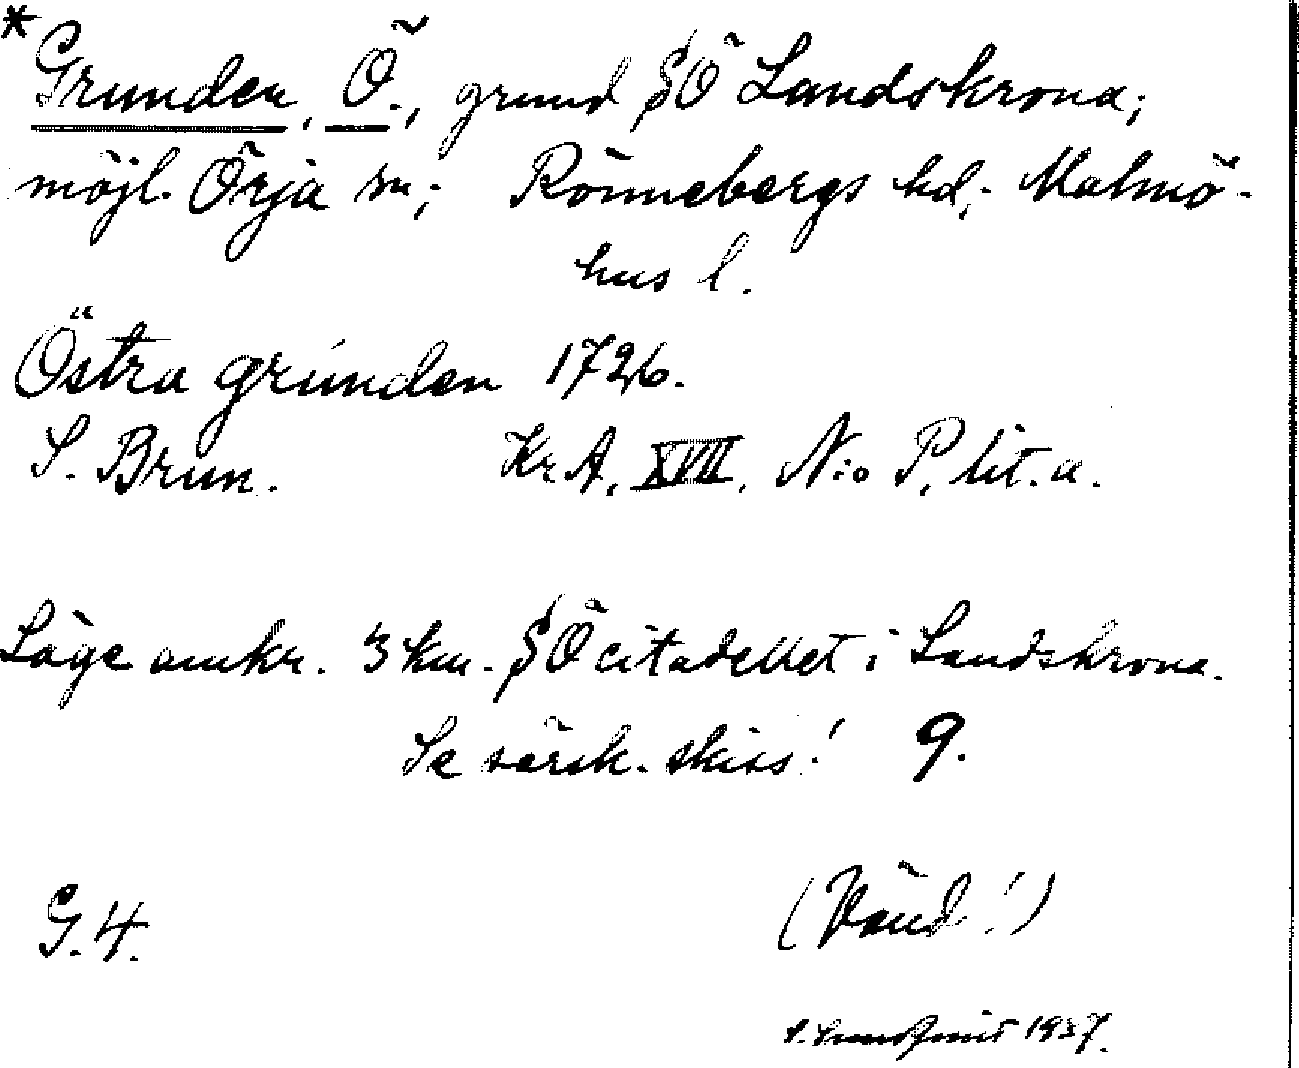 *Grunden, Ö., grund SÖ Landskrona;
möjl. Örja sn; Rönnebergs hd; Malmö-
hus l.
Östra grunden 1726.
S. Brun. Kr A, XVII, N:o P, lit. a.
Läge omkr. 3 km. SÖ citadellet i Landskrona.
Se särsk. skiss! 9.
G. 4. (Vänd!)
1937.